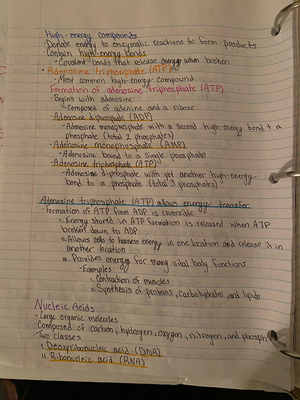 High-energy compounds
• Donate energy to enzymatic reactions to form products
Contain high-energy bonds
• Covalent bonds that release energy when broken
• Adenosine triphosphate (ATP)
• Most common high-energy compound
Formation of adenosine triphosphate (ATP)
• Begins with adenosine
• Composed of adenine and a ribose
• Adenosine diphosphate (ADP)
• Adenosine monophosphate with a second high-energy bond + a
phosphate (total 2 phosphates)
• Adenosine monophosphate (AMP)
• Adenosine bound to a single phosphate
• Adenosine triphosphate (ATP)
• Adenosine diphosphate with yet another high-energy
bond to a phosphate (total 3 phosphates)
Adenosine triphosphate (ATP) allows energy transfer
Formation of ATP from ADP is reversible
i. Energy stored in ATP formation is released when ATP
broken down to ADP
ii. Allows cells to harness energy in one location and release it in
another location
iii. Provides energy for many vital body functions
- Examples:
i. Contraction of muscles
ii. Synthesis of proteins, carbohydrates, and lipids
Nucleic Acids
• Large organic molecules
Composed of carbon, hydrogen, oxygen, nitrogen, and phosph
• Two classes
i. Deoxyribonucleic acid (DNA)
ii. Ribonucleic acid (RNA)